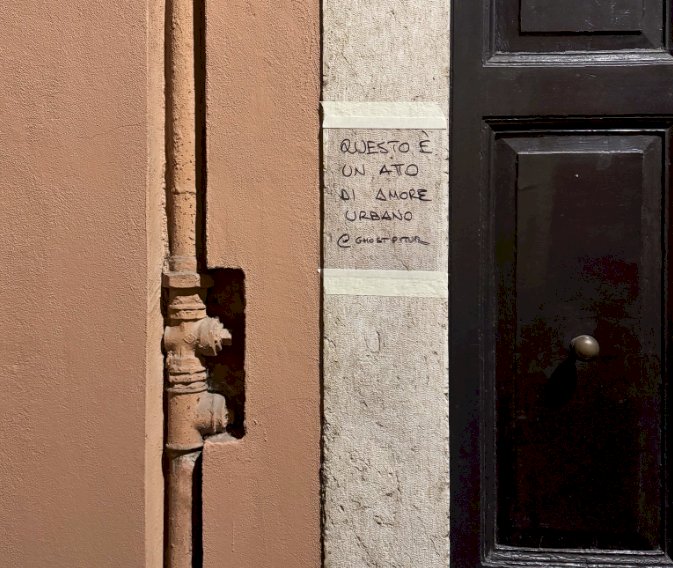 QUESTO È
UN ATO
DI AMORE
URBANO